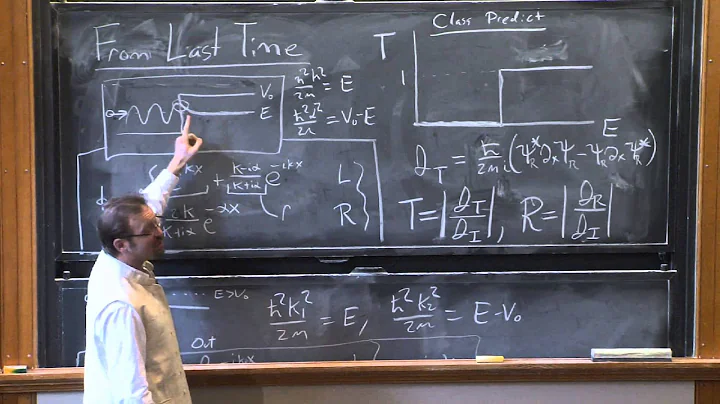 From Last Time
V₀
E
ħ²k²/2m = E
ħ²α²/2m = V₀-E
(k-iα)/(k+iα) e^-ikx
L
e^-αx
R
Class Predict
T
1
E
𝒥_T = ħ/2mi (ψ_R* ∂ₓψ_R - ψ_R ∂ₓψ_R*)
T = |𝒥_T/𝒥_I|, R = |𝒥_R/𝒥_I|
E>V₀
ħ²k₁²/2m = E, ħ²k₂²/2m = E-V₀
Out